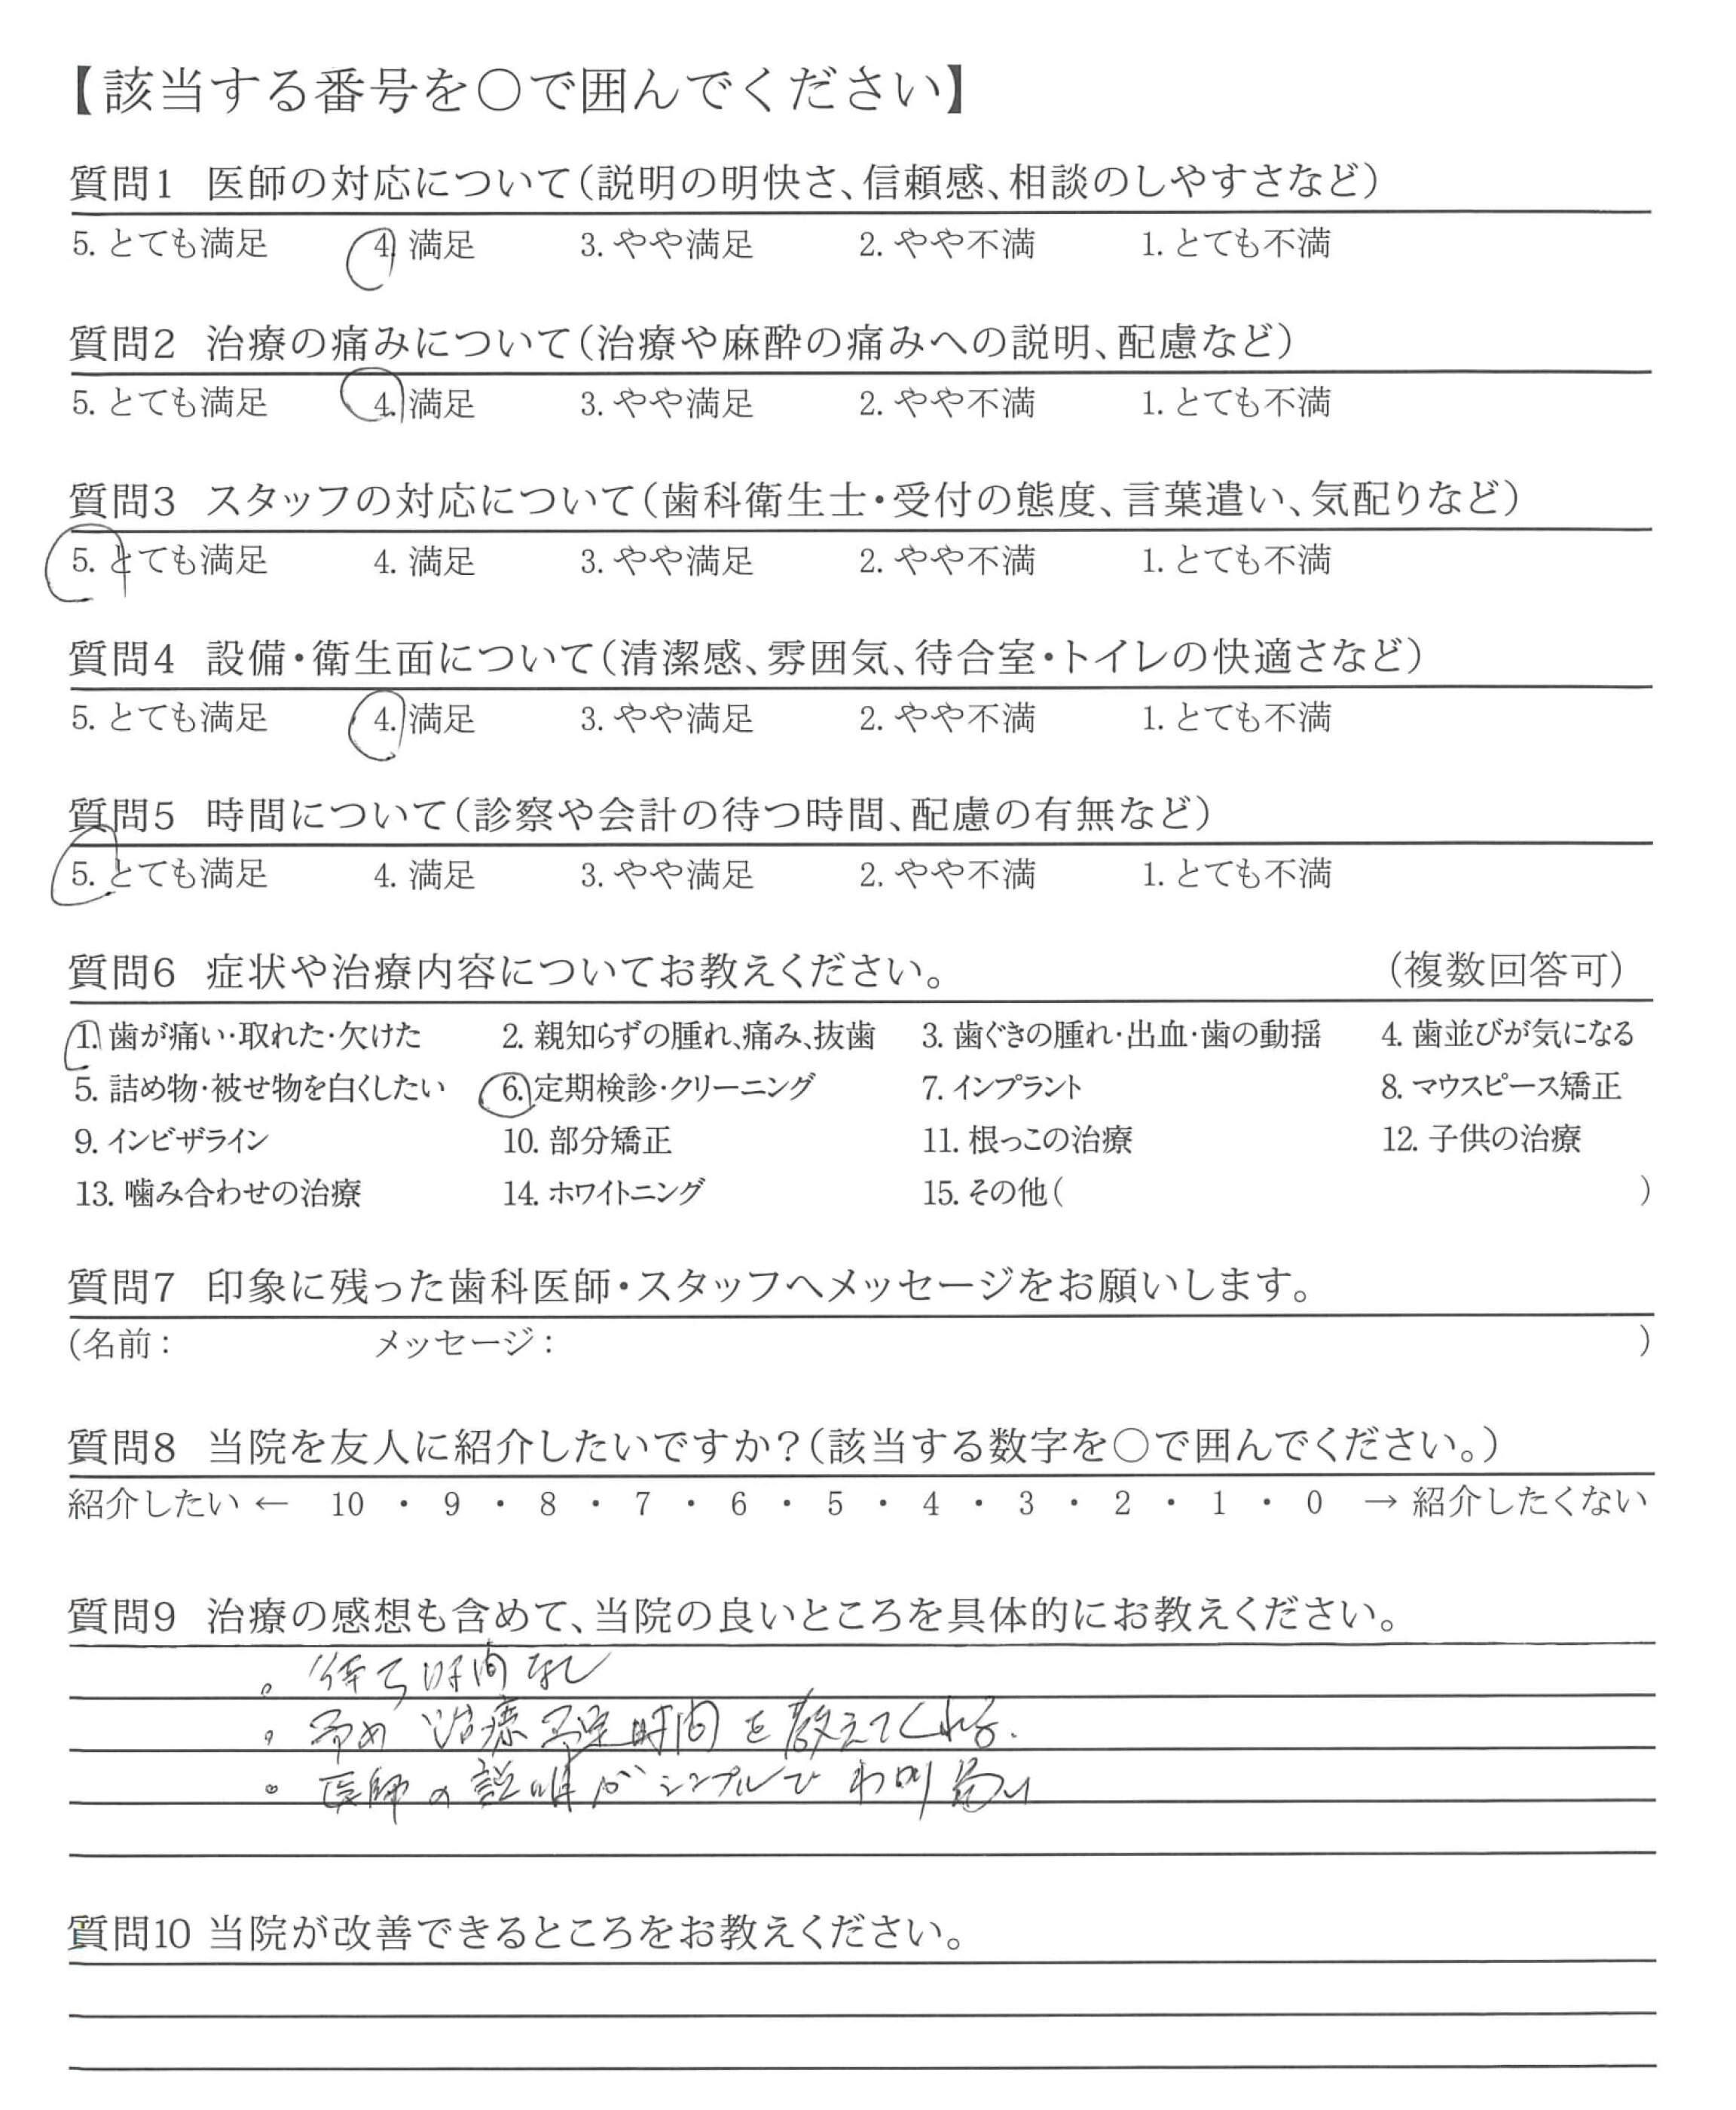 【該当する番号を〇で囲んでください】
質問1 医師の対応について(説明の明快さ、信頼感、相談のしやすさなど)
5. とても満足 4. 満足 3. やや満足 2. やや不満 1. とても不満
質問2 治療の痛みについて(治療や麻酔の痛みへの説明、配慮など)
5. とても満足 4. 満足 3. やや満足 2. やや不満 1. とても不満
質問3 スタッフの対応について(歯科衛生士・受付の態度、言葉遣い、気配りなど)
5. とても満足 4. 満足 3. やや満足 2. やや不満 1. とても不満
質問4 設備・衛生面について(清潔感、雰囲気、待合室・トイレの快適さなど)
5. とても満足 4. 満足 3. やや満足 2. やや不満 1. とても不満
質問5 時間について(診察や会計の待つ時間、配慮の有無など)
5. とても満足 4. 満足 3. やや満足 2. やや不満 1. とても不満
質問6 症状や治療内容についてお教えください。 (複数回答可)
1. 歯が痛い・取れた・欠けた 2. 親知らずの腫れ、痛み、抜歯 3. 歯ぐきの腫れ・出血・歯の動揺 4. 歯並びが気になる
5. 詰め物・被せ物を白くしたい 6. 定期検診・クリーニング 7. インプラント 8. マウスピース矯正
9. インビザライン 10. 部分矯正 11. 根っこの治療 12. 子供の治療
13. 噛み合わせの治療 14. ホワイトニング 15. その他( )
質問7 印象に残った歯科医師・スタッフへメッセージをお願いします。
(名前: メッセージ: )
質問8 当院を友人に紹介したいですか?(該当する数字を〇で囲んでください。)
紹介したい ← 10 ・ 9 ・ 8 ・ 7 ・ 6 ・ 5 ・ 4 ・ 3 ・ 2 ・ 1 ・ 0 → 紹介したくない
質問9 治療の感想も含めて、当院の良いところを具体的にお教えください。
。待ち時間なし
。予め 治療予定時間を教えてくれる.
。医師の説明がシンプルでわかり易い
質問10 当院が改善できるところをお教えください。